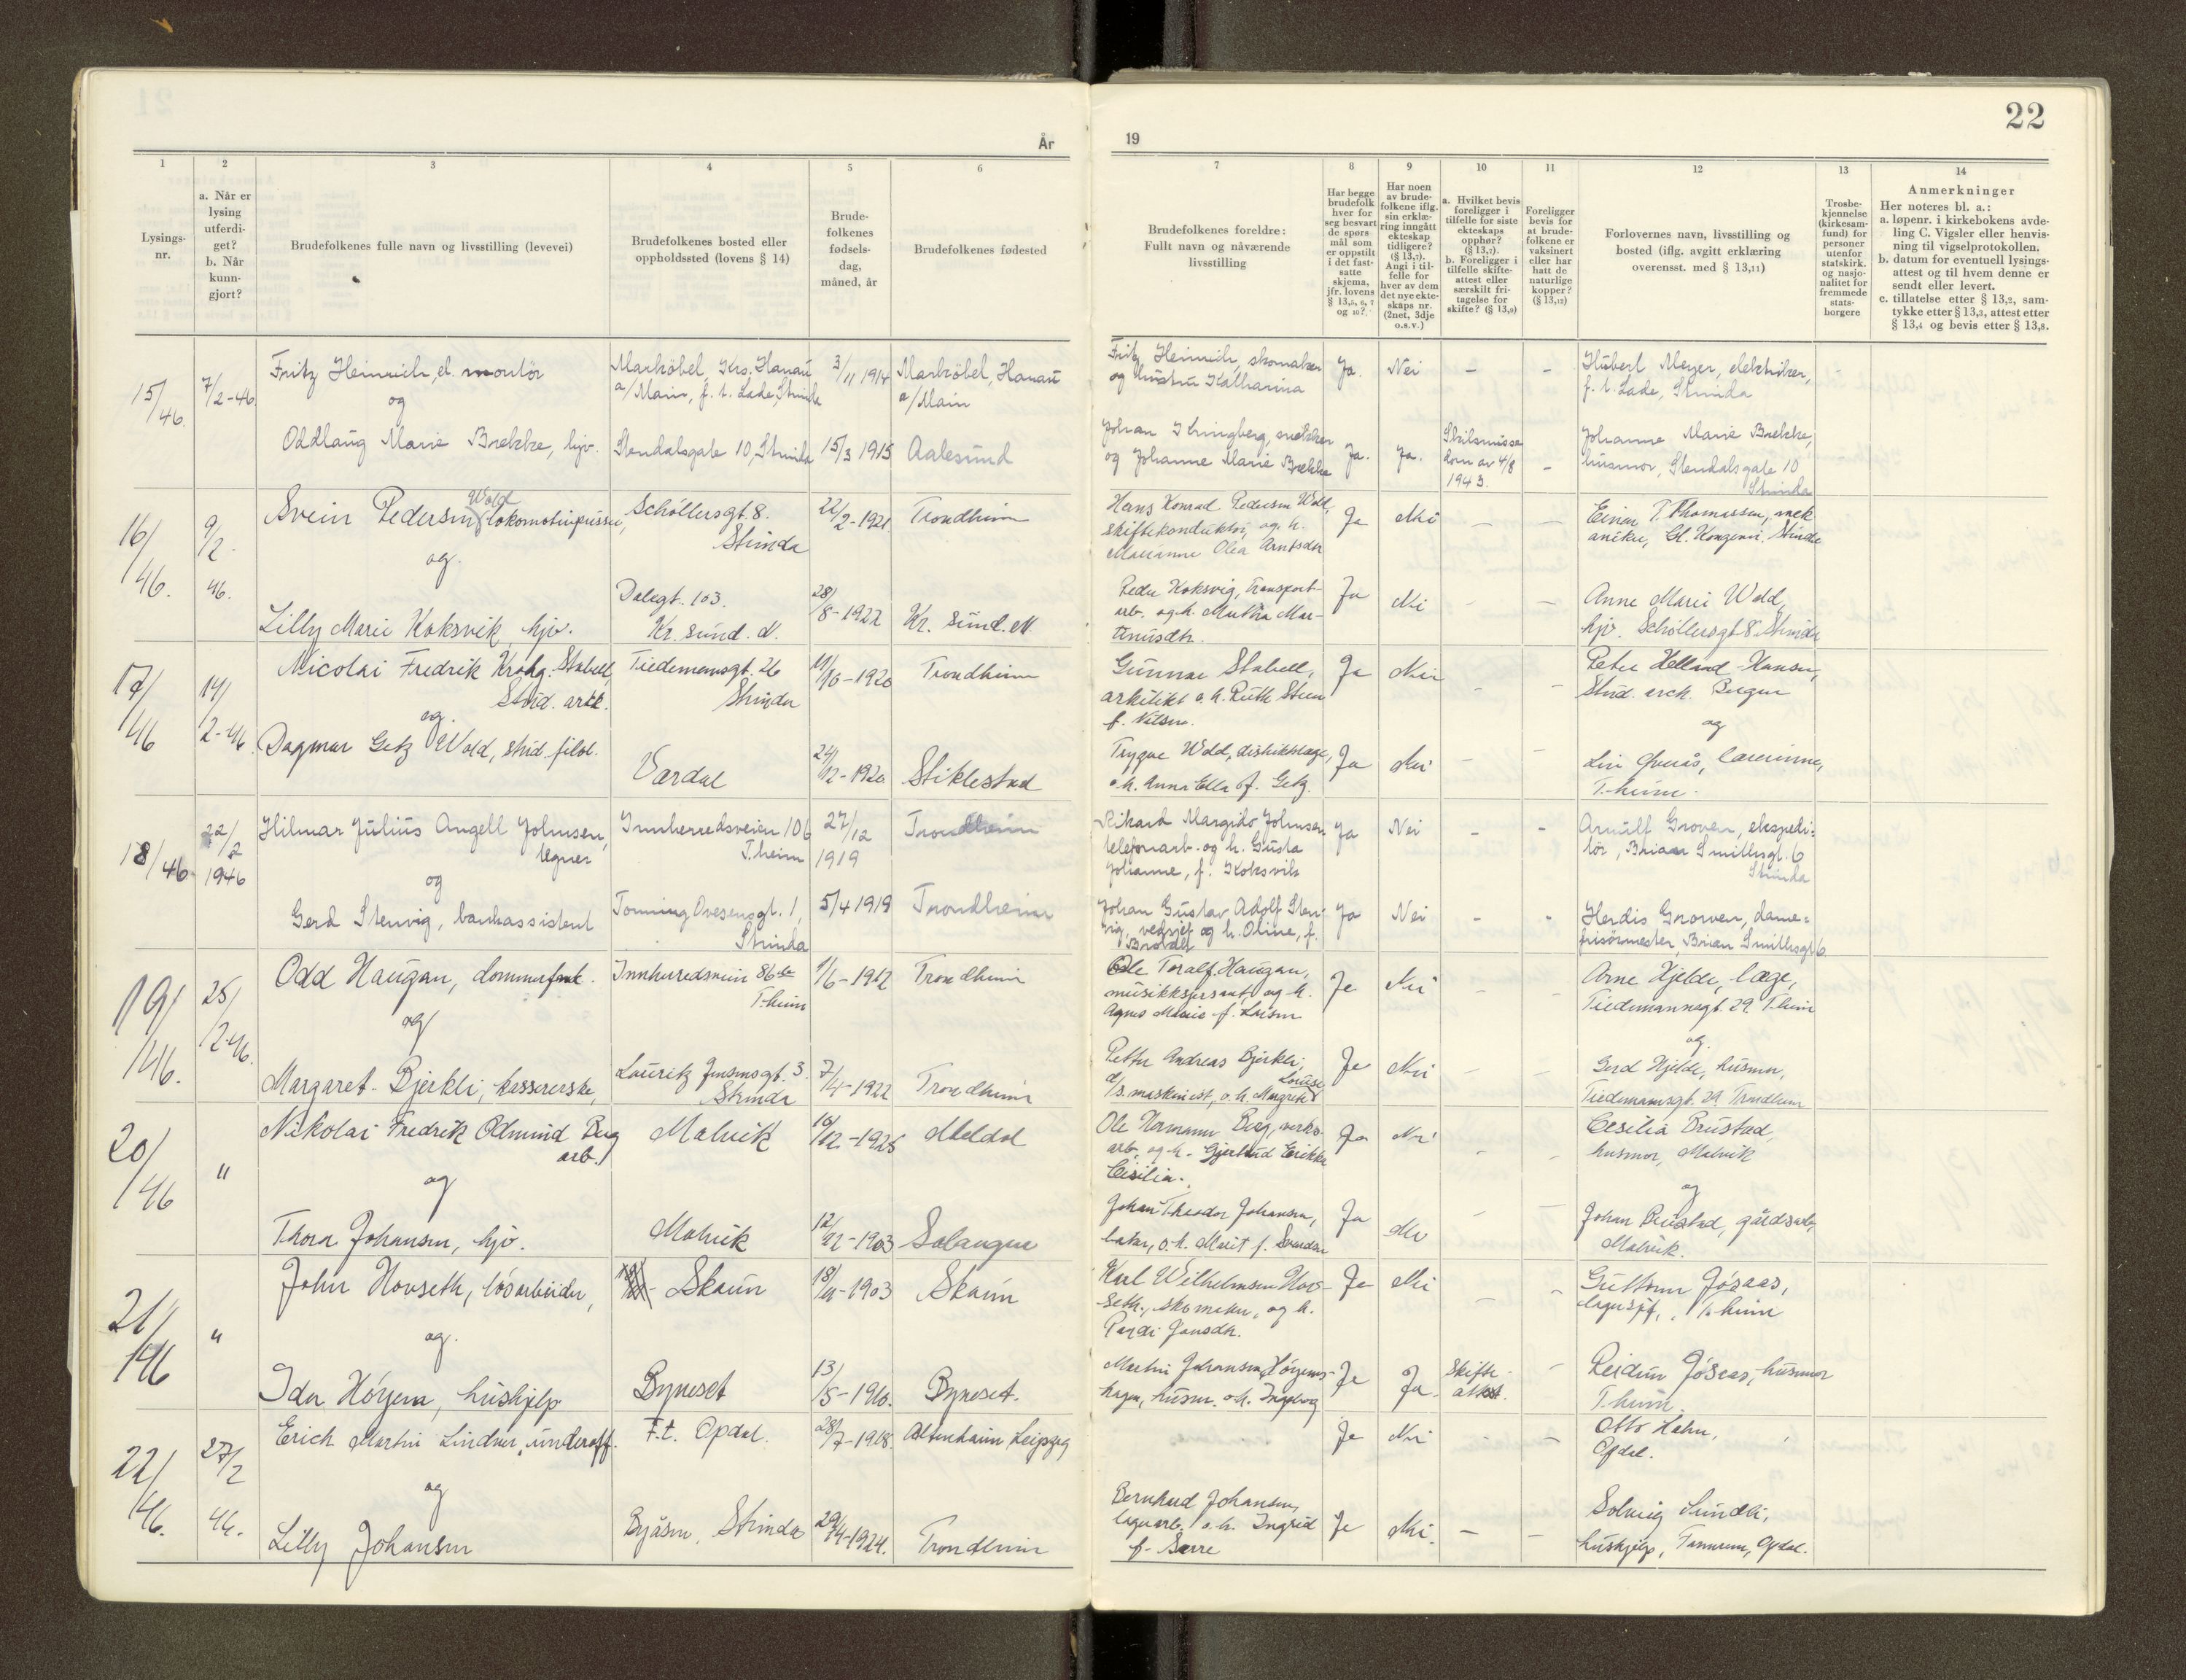 22
År
19
1
2
3
4
5
6
7
8
9
10
11
12
13
14
Lysings-
nr.
a. Når er
lysing
utferdi-
get?
b. Når
kunn-
gjort?
Brudefolkenes fulle navn og livsstilling (levevei)
Brudefolkenes bosted eller
oppholdssted (lovens § 14)
Brude-
folkenes
fødsels-
dag,
måned, år
Brudefolkenes fødested
Brudefolkenes foreldre:
Fullt navn og nåværende
livsstilling
Har begge
brudefolk
hver for
seg besvart
de spørs
mål som
er oppstilt
i det fast-
satte
skjema,
jfr. lovens
§ 13,5, 6, 7
og 10?
Har noen
av brude-
folkene iflg.
sin erklæ-
ring inngått
ekteskap
tidligere?
(§ 13,7).
Angi i til-
felle for
hver av dem
det nye ekte-
skaps nr.
(2net, 3dje
o.s.v.)
a. Hvilket bevis
foreligger i
tilfelle for siste
ekteskaps
opphør?
(§ 13,7).
b. Foreligger i
tilfelle skifte-
attest eller
særskilt fri-
tagelse for
skifte? (§ 13,9)
Foreligger
bevis for
at brude-
folkene er
vaksinert
eller har
hatt de
naturlige
kopper?
(§ 13,12)
Forlovernes navn, livsstilling og
bosted (iflg. avgitt erklæring
overensst. med § 13,11)
Trosbe-
kjennelse
(kirkesam-
fund) for
personer
utenfor
statskirk.
og nasjo-
nalitet for
fremmede
stats-
borgere
Anmerkninger
Her noteres bl. a.:
a. løpenr. i kirkebokens avde-
ling C. Vigsler eller henvis-
ning til vigselprotokollen.
b. datum for eventuell lysings-
attest og til hvem denne er
sendt eller levert.
c. tillatelse etter § 13,2, sam-
tykke etter § 13,3, attest etter
§ 13,4 og bevis etter § 13,8.
15/46. 7/2-46 Fritz Heinrich, el. montör Marköbel, Krs. Hanau 3/11 1914 Marköbel, Hanau
a/Main, f. t. Lade, Strinda a/Main
Fritz Heinrich, skomaker Ja. Nei - - Hubert Meyer, elektriker,
og hustru Katharina f. t. Lade, Strinda
og
Oddlaug Marie Brekke, hjv. Stendalsgate 10, Strinda 15/3 1915 Aalesund
Johan Klungberg, snekker Ja. Ja. Skilsmisse Johanne Marie Brekke,
og Johanne Marie Brekke dom av 4/8 - husmor, Stendalsgate 10
1943. Strinda
16/46. 9/2-46. Svein Pedersen Wold, lokomotivpusser, Schöllersgt. 8. 22/2-1921 Trondheim
Strinda
Hans Konrad Pedersen Wold, Ja Nei - - Einar T. Thomassen, mek
skiftekonduktör, og h. aniker, Gl. Kongevei. Strinda
Marianne Olea Arntsdtr
og
Lilly Marie Koksvik, hjv. Dalegt. 103. 28/8-1922 Kr. sund. N.
Kr. sund. N.
Peder Koksvig, transport- Ja Nei - - Anne Marie Wold,
arb. og h. Martha Mar- hjv. Schöllersgt 8 Strinda
tinusdtr.
17/46 14/2-46. Nicolai Fredrik Krohg Stabell, Tiedemannsgt. 26 19/10-1920 Trondheim
Stud. ark. Strinda
Gunnar Stabell, Ja Nei - - Peter Helland-Hansen,
arkitekt o. h. Ruth Steen Stud. arch. Bergen
f. Nilsen.
og
og
Dagmar Getz Wold, stud. filol. Værdal 24/12-1920 Stiklestad
Trygve Wold, distriktslæge, Ja Nei - - Liv Øverås, lærerinne,
o. h. Anna Ella f. Getz. T.heim.
18/46 22/2 1946 Hilmar Julius Angell Johnsen, Innherredsveien 106 27/12 1919 Trondheim
tegner T.heim
Rikard Margido Johnsen Ja Nei - - Arnulf Groven, ekspedi-
telefonarb. og h. Gusta tör, Brian Smithsgt. 6
Johanne, f. Koksvik Strinda
og
Gerd Stenvig, bankassistent Tonning Ovesensgt. 1, 5/4 1919 Trondheim
Strinda
Johan Gustav Adolf Sten- Ja Nei - - Herdis Groven, dame-
vig, vedsjef og h. Oline, f. frisörmester, Brian Smithsgt 6
19/46. 25/2-46. Odd Haugan, dommerfm. Innherredsveien 86 1/6-1912 Trondheim
T.heim
Ole Toralf Haugan, Ja Nei - - Arne Hjelde, læge,
musikksersant, og h. Tiedemannsgt. 29. T.heim
Agnes Marie f. Larsen
og
og.
Margaret Bjerkli, kassererske, Lauritz Jensensgt. 3. 7/4-1922 Trondheim
Strinda
Petter Andreas Bjerkli, Ja Nei - - Gerd Hjelde, husmor,
d/s. maskinist, o. h. Margrete Louise Tiedemannsgt. 29. Trondheim
20/46 " Nikolai Fredrik Odmund Berg Malvik 10/12-1925 Meldal
arb.
Ole Hermann Berg, verks- Ja Nei - - Cesilia Brustad,
arb. og h. Gjertrud Erikka husmor, Malvik
Cisilia.
og
og
Thora Johansen, hjv. Malvik 12/12-1903 Salangen
Johan Theodor Johansen, Ja Nei - - Johan Brustad, gårdsarb,
baker, o. h. Marit f. Svendsen Malvik.
21/46 " John Hovseth, lösarbeider, Skaun 18/11-1903 Skaun
Karl Wilhelmsen Hov- Ja Nei - - Guttorm Jösaas,
seth, skomaker, og h. lagersjef, T.heim
Jonsdtr.
og.
Ida Höyem, hushjelp Byneset 13/5-1910. Byneset.
Martin Johansen Höyems- Ja Ja. Skifte- - Reidun Jösaas, husmor
hagen, husm. o. h. Ingeborg attest. T.heim.
22/46. 27/2 46. Erich Martin Lindner, underoff. F.t. Opdal. 28/7-1918. Altenhaim Leipzig
Ja Nei - - Otto Hahn,
Opdal.
og
Lilly Johansen Byåsen, Strinda 29/4-1924. Trondheim
Bernhard Johansen, Ja Nei. - - Solveig Sundli,
lagerarb. o. h. Ingrid hushjelp, Tannrem, Opdal.
f. Sarre